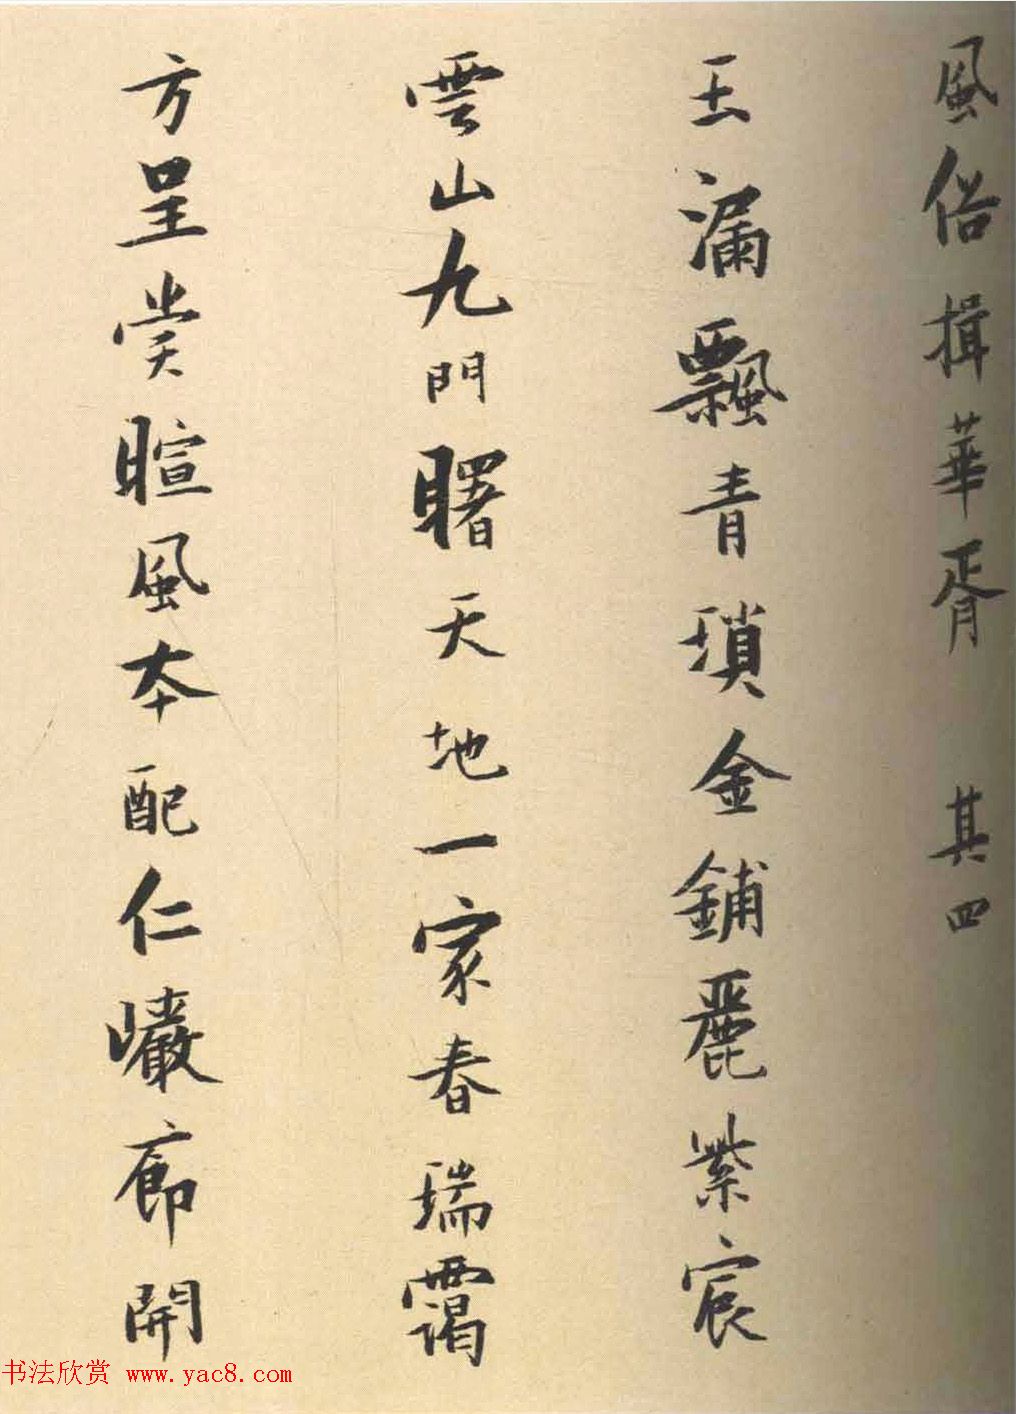 風俗揖華胥　其四
玉漏飄青瑣金鋪麗紫宸
雲山九門曙天地一家春瑞靄
方呈賞暄風本配仁巖廊開
书法欣赏 www.yac8.com